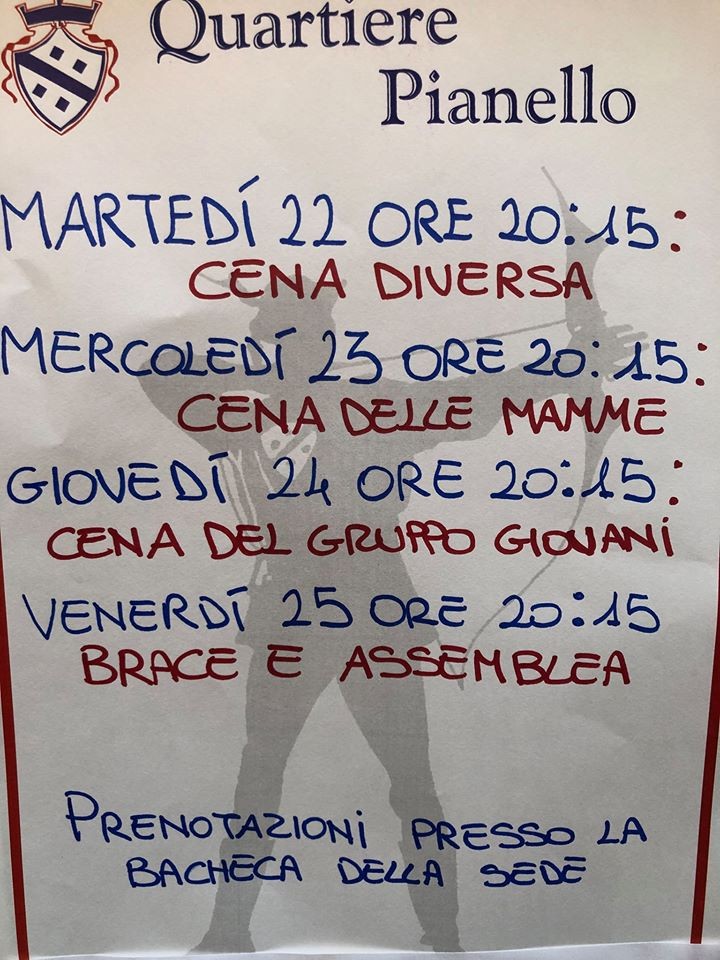 Quartiere
Pianello
MARTEDÍ 22 ORE 20:15:
CENA DIVERSA
MERCOLEDÍ 23 ORE 20:15:
CENA DELLE MAMME
GIOVEDÍ 24 ORE 20:15:
CENA DEL GRUPPO GIOVANI
VENERDÍ 25 ORE 20:15
BRACE E ASSEMBLEA
PRENOTAZIONI PRESSO LA
BACHECA DELLA SEDE